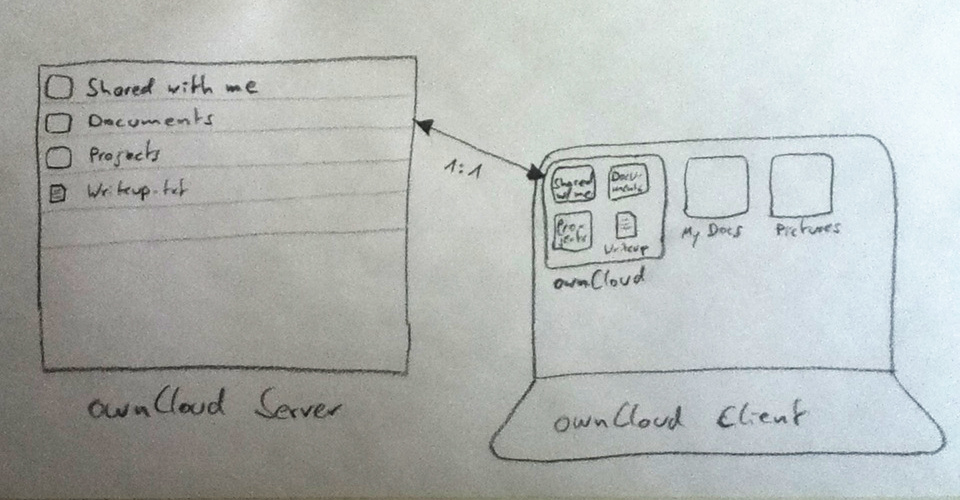 Shared with me
Documents
Projects
Writeup.txt
ownCloud Server
1:1
Shared
w/ me
Docu-
ments
Pro-
jects
Writeup
ownCloud
My Docs
Pictures
ownCloud Client